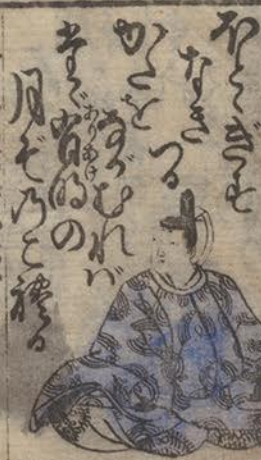 ほとゝぎす
なきつる
かたを
ながむれば
たゞ有明の
ありあけ
月ぞのこれる